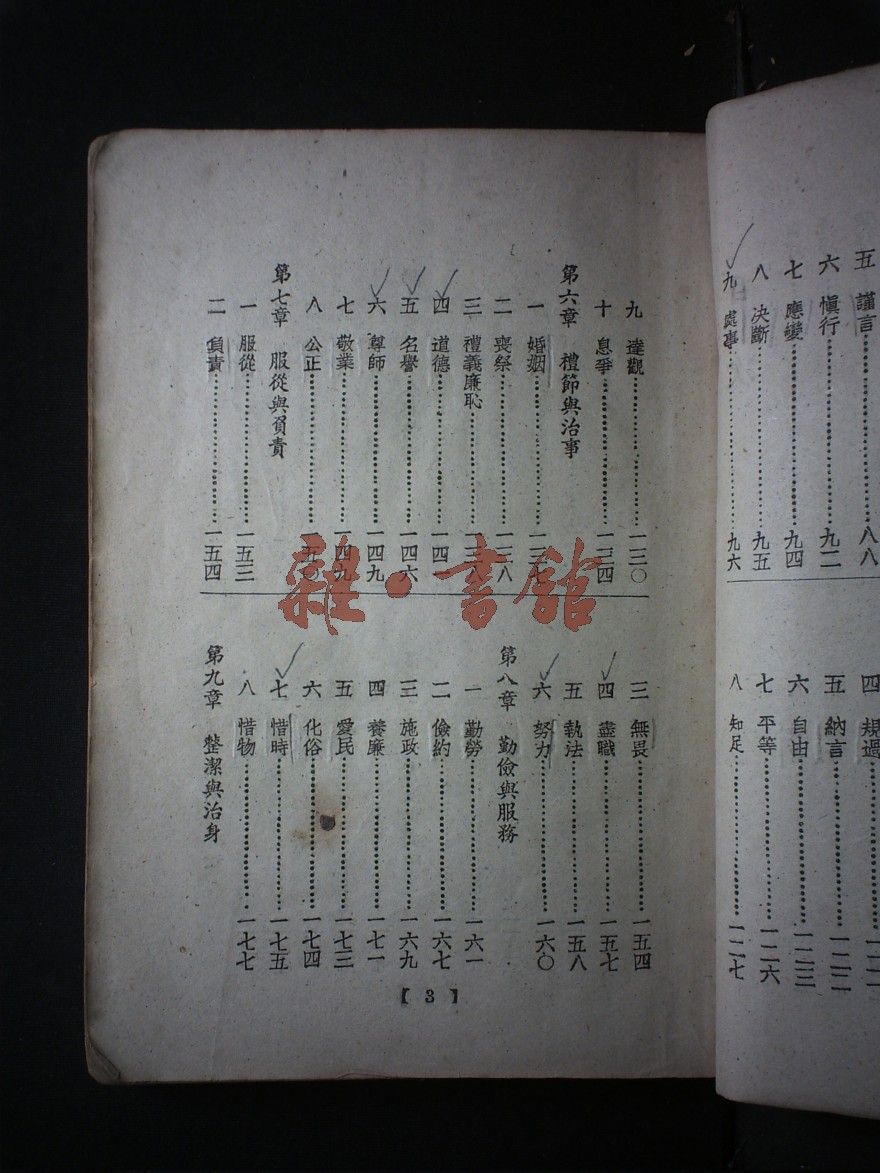 五 謹言……八八
六 愼行……九二
七 應變……九四
八 決斷……九五
九 處事……九六
四 規過……
五 納言……一二二
六 自由……一二三
七 平等……一二六
八 知足……一二七
九 達觀……一三〇
十 息爭……一三四
第六章 禮節與治事
一 婚姻……一三七
二 喪祭……一三八
三 禮義廉恥……
四 道德……
五 名譽……一四六
六 尊師……一四九
七 敬業……一四九
八 公正……一五〇
第七章 服從與負責
一 服從……一五三
二 負責……一五四
三 無畏……一五四
四 盡職……一五七
五 執法……一五八
六 努力……一六〇
第八章 勤儉與服務
一 勤勞……一六一
二 儉約……一六七
三 施政……一六九
四 養廉……一七一
五 愛民……一七三
六 化俗……一七四
七 惜時……一七五
八 惜物……一七七
第九章 整潔與治身
【3】
雜·書館